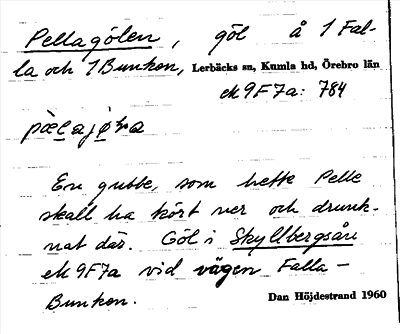 Pellagölen, göl å 1 Fal-
la och 1 Bunkon, Lerbäcks sn, Kumla hd, Örebro län
ek 9F7a: 784
En gubbe, som hette Pelle
skall ha kört ner och drunk-
nat där. Göl i Skyllbergsån
ek 9F7a vid vägen Falla –
Bunkon. Dan Höjdestrand 1960